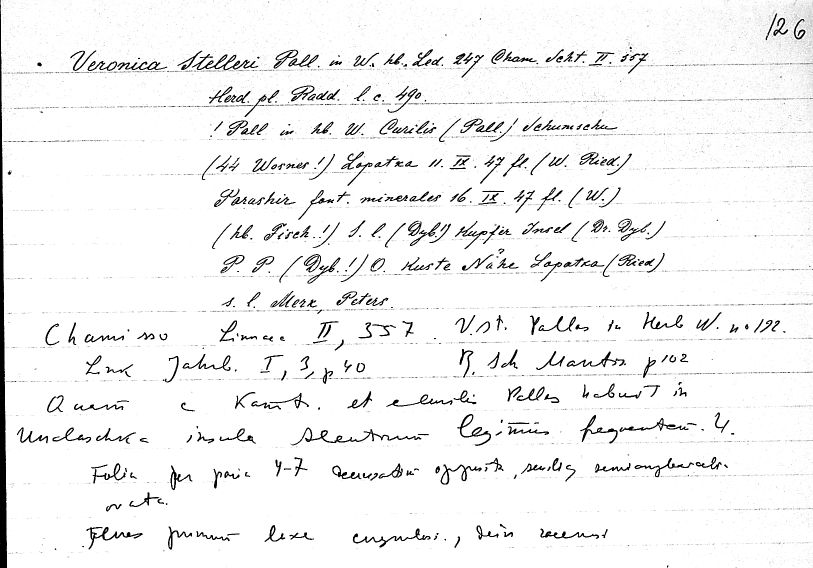 126
Veronica Stelleri Pall. in W. hb. Led. 247 Cham. Scht. II. 357
Herd. pl. Radd. l. c. 490.
! Pall in hb. W. Curilis (Pall.) Schumschu
(44 Wosnes!) Lopatka 11. IX. 47 fl. (W. Ried)
Parashir font. minerales 16. IX. 47 fl. (W.)
(hb. Fisch.!) S. l. (Dyb!) Kupfer Insel (Dr. Dyb.)
P. P. (Dyb.!) O. Kuste Nähe Lopatka (Ried)
s. l. Merk, Peters.
Chamisso Linnaea II, 357. V. St. Pallas in Herb W. no 192.
Link Jahrb. I, 3, p 40 R. Sch Mantss p 102
Quam e Kamts. et Pallas habuit in
Unalaschka insula legimus frequentem. 4.
Folia per paria 4-7 opposita, sessilia
ovata.
Flores primum laxe, dein